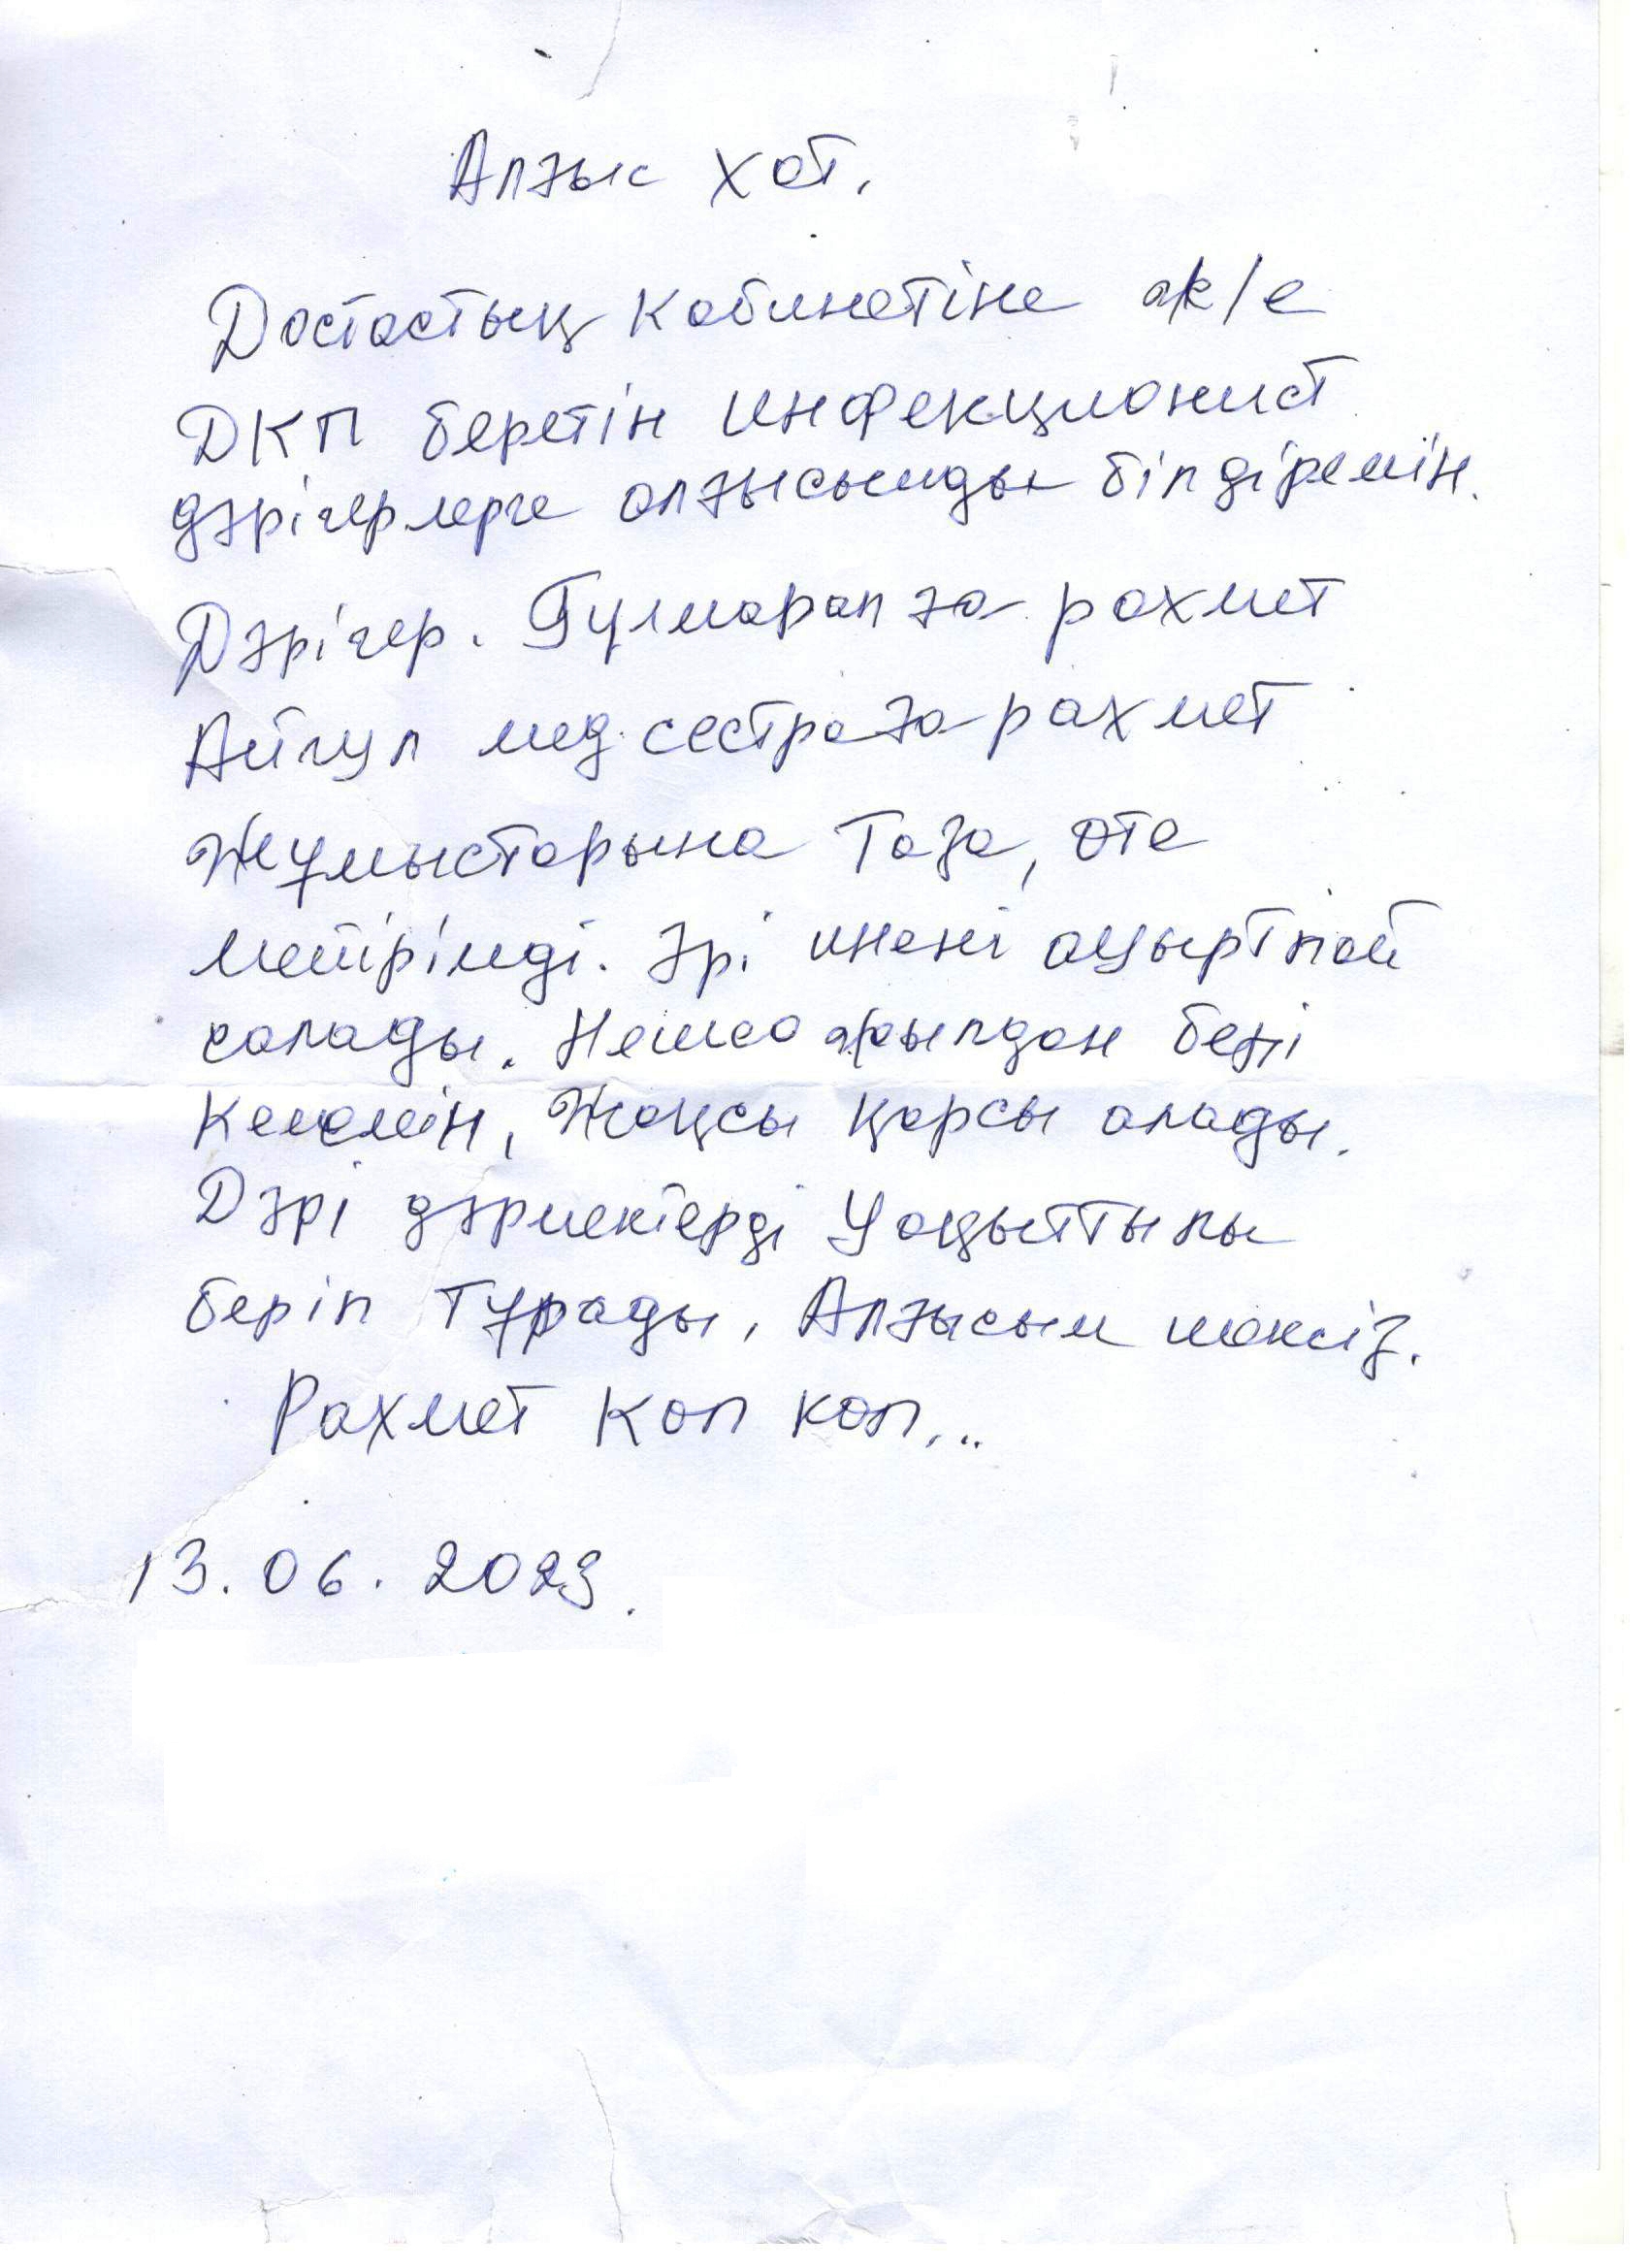 Алғыс хат.
Достастық кабинетіне ж/е
ДКП беретін инфекционист
дәрігерлерге алғысымды білдіремін.
Дәрігер. Гулмаралға рахмет
Айгул мед.сестраға рахмет
Жұмыстарына Таза, өте
мейірімді. әрі инені ауыртпай
салады. Неше жылдан бері
Келемін, Жақсы қарсы алады.
Дәрі дәрмектерді Уақыттылы
беріп Тұрады, Алғысым шексіз.
Рахмет Коп коп...
13.06.2023.